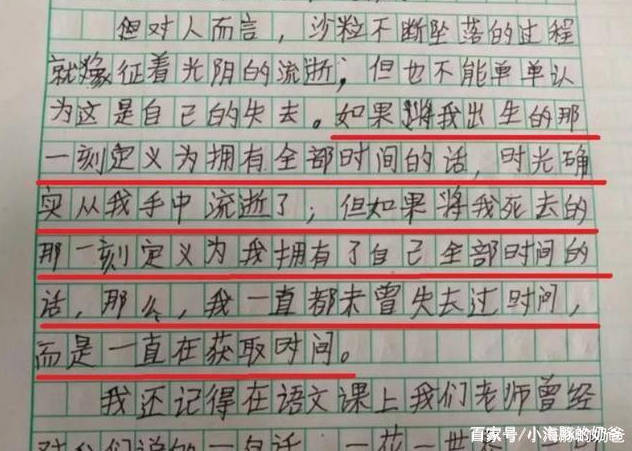 但对人而言，沙粒不断坠落的过程
就像征着光阴的流逝；但也不能单单认
为这是自己的失去。如果将我出生的那
一刻定义为拥有全部时间的话，时光确
实从我手中流逝了；但如果将我死去的
那一刻定义为我拥有了自己全部时间的
话，那么，我一直都未曾失去过时间，
而是一直在获取时间。
我还记得在语文课上我们老师曾经
对我们说的一句话，一花一世界
百家号/小海豚的奶爸